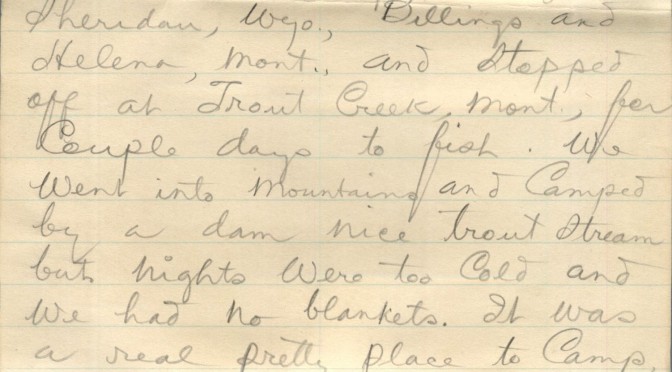 Sheridan, Wyo., Billings and
Helena, Mont., and Stopped
off at Trout Creek, Mont., for
Couple days to fish. We
Went into Mountains and Camped
by a dam nice trout Stream
but Nights Were too Cold and
We had No blankets. It was
a real pretty place to Camp,